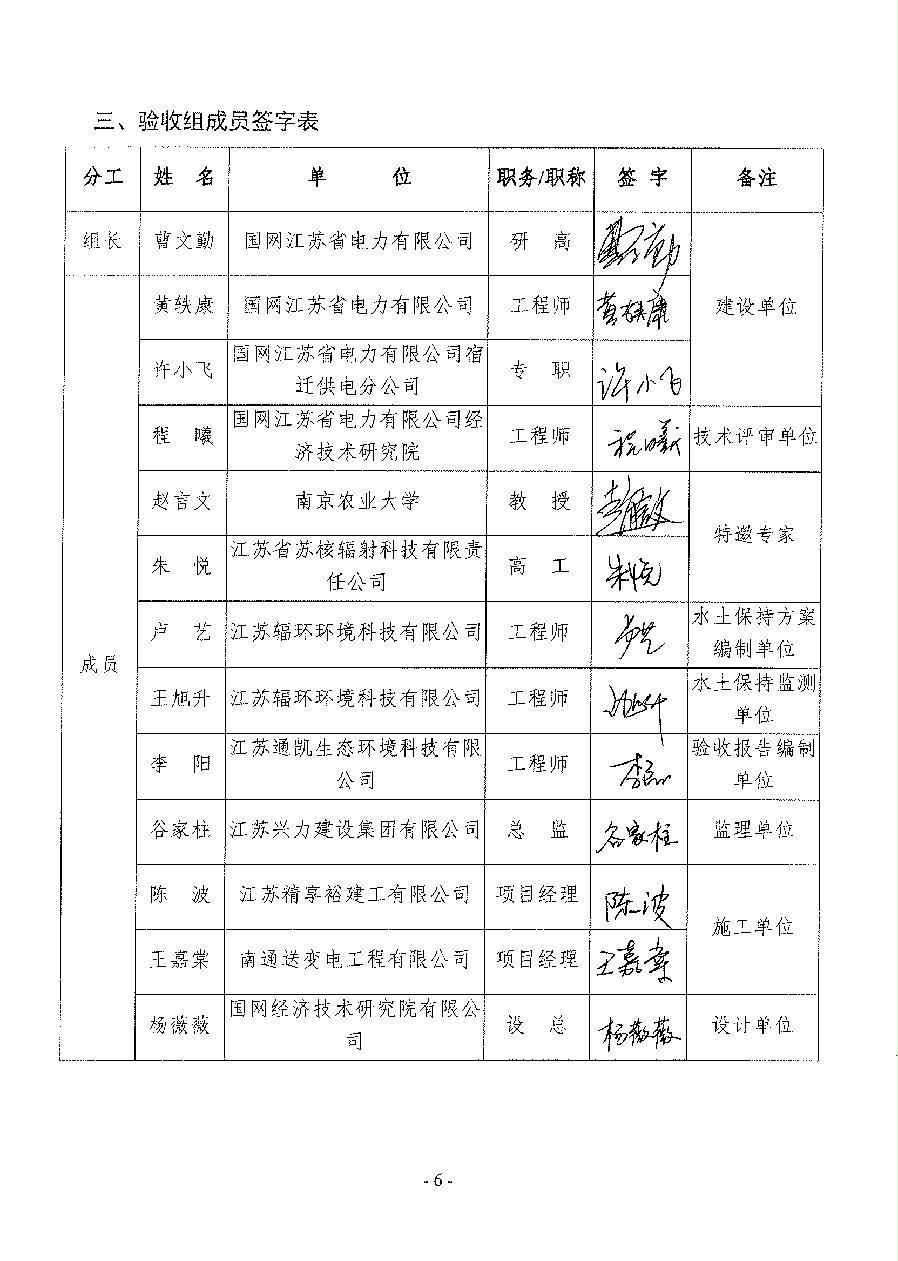 三、验收组成员签字表
分工 姓 名 单 位 职务/职称 签 字 备注
组长 曹文勤 国网江苏省电力有限公司 研 高
黄轶康 国网江苏省电力有限公司 工程师 黄轶康 建设单位
许小飞 国网江苏省电力有限公司宿
迁供电分公司 专 职 许小飞
程 曦 国网江苏省电力有限公司经
济技术研究院 工程师 程曦 技术评审单位
赵言文 南京农业大学 教 授
特邀专家
朱 悦 江苏省苏核辐射科技有限责
任公司 高 工 朱悦
成员
卢 艺 江苏辐环环境科技有限公司 工程师 卢艺 水土保持方案
编制单位
王旭升 江苏辐环环境科技有限公司 工程师 水土保持监测
单位
李 阳 江苏通凯生态环境科技有限
公司 工程师 李阳 验收报告编制
单位
谷家柱 江苏兴力建设集团有限公司 总 监 谷家柱 监理单位
陈 波 江苏精享裕建工有限公司 项目经理 陈波
施工单位
王嘉棠 南通送变电工程有限公司 项目经理 王嘉棠
杨薇薇 国网经济技术研究院有限公
司 设 总 杨薇薇 设计单位
- 6 -